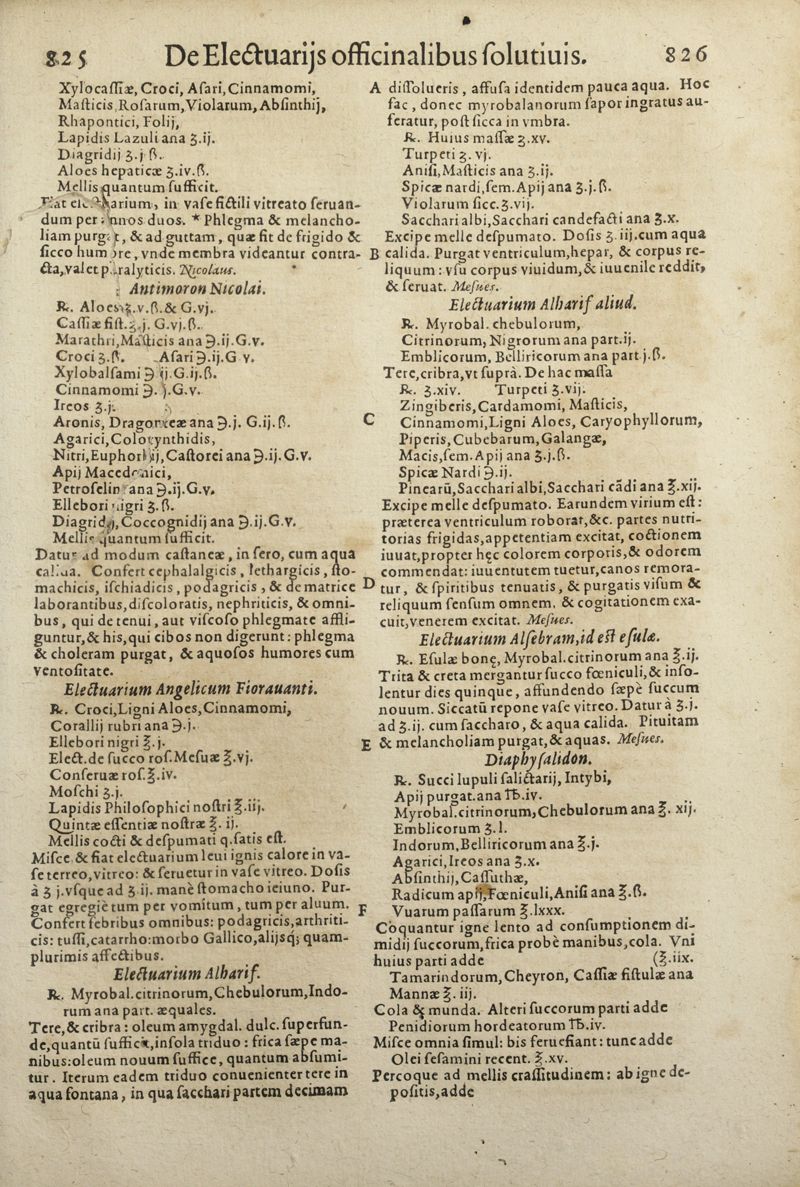 825 De Electuarijs officinalibus solutiuis. 826
Xylocassiæ, Croci, Asari, Cinnamomi,
Masticis, Rosarum, Violarum, Absinthij,
Rhapontici, Folij,
Lapidis Lazuli ana ʒ.ij.
Diagridij ʒ.j ß.
Aloes hepaticæ ʒ.iv.ß.
Mellis quantum sufficit.
Fiat electuarium, in vase fictili vitreato seruan-
dum per annos duos. * Phlegma & melancho-
liam purgat, & ad guttam, quæ fit de frigido &
sicco humore, vnde membra videantur contra-
cta, valet paralyticis. Nicolaus.
Antimoron Nicolai.
℞. Aloes ʒ.v.ß. & G.vj.
Cassiæ fist. ʒ.j. G.vj.ß.
Marathri, Masticis ana ℈.ij.G.v.
Croci ʒ.ß. Asari ℈.ij.G v.
Xylobalsami ℈ ij G.ij.ß.
Cinnamomi ℈. j.G.v.
Ireos ʒ.j.
Aronis, Dragonteæ ana ℈.j. G.ij.ß.
Agarici, Colocynthidis,
Nitri, Euphorbij, Castorei ana ℈.ij.G.v.
Apij Macedonici,
Petroselin ana ℈.ij.G.v.
Ellebori nigri ʒ.ß.
Diagridij, Coccognidij ana ℈.ij.G.v.
Mellis quantum sufficit.
Datur ad modum castaneæ, in sero, cum aqua
calida. Confert cephalalgicis, lethargicis, sto-
machicis, ischiadicis, podagricis, & de matrice
laborantibus, discoloratis, nephriticis, & omni-
bus, qui de tenui, aut viscoso phlegmate affli-
guntur, & his, qui cibos non digerunt: phlegma
& choleram purgat, & aquosos humores cum
ventositate.
Electuarium Angelicum Fiorauanti.
℞. Croci, Ligni Aloes, Cinnamomi,
Corallij rubri ana ℈.j.
Ellebori nigri ℥.j.
Elect. de succo ros. Mesuæ ℥.vj.
Conseruæ ros. ℥.iv.
Moschi ʒ.j.
Lapidis Philosophici nostri ℥.iij.
Quintæ essentiæ nostræ ℥. ij.
Mellis cocti & despumati q.satis est.
Misce & fiat electuarium leui ignis calore in va-
se terreo, vitreo: & seruetur in vase vitreo. Dosis
à ʒ j.vsque ad ʒ ij. manè stomacho ieiuno. Pur-
gat egregiè tum per vomitum, tum per aluum.
Confert febribus omnibus: podagricis, arthriti-
cis: tussi, catarrho: morbo Gallico, alijsq; quam-
plurimis affectibus.
Electuarium Alharif.
℞. Myrobal. citrinorum, Chebulorum, Indo-
rum ana part. æquales.
Tere, & cribra: oleum amygdal. dulc. superfun-
de, quantũ sufficit, insola triduo: frica sæpe ma-
nibus: oleum nouum suffice, quantum absumi-
tur. Iterum eadem triduo conuenienter tere in
aqua fontana, in qua sacchari partem decimam
A dissolueris, affusa identidem pauca aqua. Hoc
fac, donec myrobalanorum sapor ingratus au-
feratur, post sicca in vmbra.
℞. Huius massæ ʒ.xv.
Turpeti ʒ. vj.
Anisi, Masticis ana ʒ.ij.
Spicæ nardi, sem. Apij ana ʒ.j.ß.
Violarum sicc. ʒ.vij.
Sacchari albi, Sacchari candefacti ana ʒ.x.
Excipe melle despumato. Dosis ʒ.iij.cum aqua
B calida. Purgat ventriculum, hepar, & corpus re-
liquum: vsu corpus viuidum, & iuuenile reddit,
& seruat. Mesues.
Electuarium Alharif aliud.
℞. Myrobal. chebulorum,
Citrinorum, Nigrorum ana part.ij.
Emblicorum, Belliricorum ana part.j.ß.
Tere, cribra, vt suprà. De hac massa
℞. ʒ.xiv. Turpeti ʒ.vij.
Zingiberis, Cardamomi, Mastic​is,
C Cinnamomi, Ligni Aloes, Caryophyllorum,
Piperis, Cubebarum, Galangæ,
Macis, sem. Apij ana ʒ.j.ß.
Spicæ Nardi ℈.ij.
Pinearũ, Sacchari albi, Sacchari cãdi ana ℥.xij.
Excipe melle despumato. Earundem virium est:
præterea ventriculum roborat, &c. partes nutri-
torias frigidas, appetentiam excitat, coctionem
iuuat, propter hęc colorem corporis, & odorem
commendat: iuuentutem tuetur, canos remora-
D tur, & spiritibus tenuatis, & purgatis visum &
reliquum sensum omnem, & cogitationem exa-
cuit, venerem excitat. Mesues.
Electuarium Alsebram, id est esulæ.
℞. Esulæ bonę, Myrobal. citrinorum ana ℥.ij.
Trita & creta mergantur succo fœniculi, & inso-
lentur dies quinque, affundendo sæpè succum
nouum. Siccatũ repone vase vitreo. Datur à ʒ.j.
ad ʒ.ij. cum saccharo, & aqua calida. Pituitam
E & melancholiam purgat, & aquas. Mesues.
Diaphysalidon.
℞. Succi lupuli salictarij, Intybi,
Apij purgat. ana ℔.iv.
Myrobal. citrinorum, Chebulorum ana ℥. xij.
Emblicorum ʒ.l.
Indorum, Belliricorum ana ℥.j.
Agarici, Ireos ana ʒ.x.
Absinthij, Cassuthæ,
Radicum apij, Fœniculi, Anisi ana ℥.ß.
F Vuarum passarum ℥.lxxx.
Coquantur igne lento ad consumptionem di-
midij succorum, frica probè manibus, cola. Vni
huius parti adde (℥.iix.
Tamarindorum, Cheyron, Cassiæ fistulæ ana
Mannæ ℥. iij.
Cola & munda. Alteri succorum parti adde
Penidiorum hordeatorum ℔.iv.
Misce omnia simul: bis feruefiant: tunc adde
Olei sesamini recent. ℥.xv.
Percoque ad mellis crassitudinem: ab igne de-
positis, adde